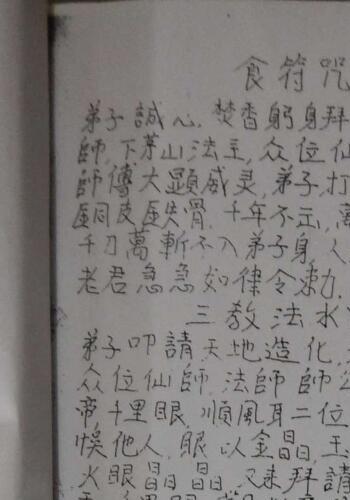 食符咒
弟子誠心焚香躬身拜
師,下茅山法主,众位仙
師傳大顯威灵,弟子打
銅皮鉄骨.千年不 萬
千刀萬斬不入弟子身.人
老君急急如律令勅.
三教法水
弟子叩請天地造化.
众位仙師.法師師公
帝千里眼.順風耳二位
悮他人.眼以金晶.玉
火眼晶晶.又来拜請